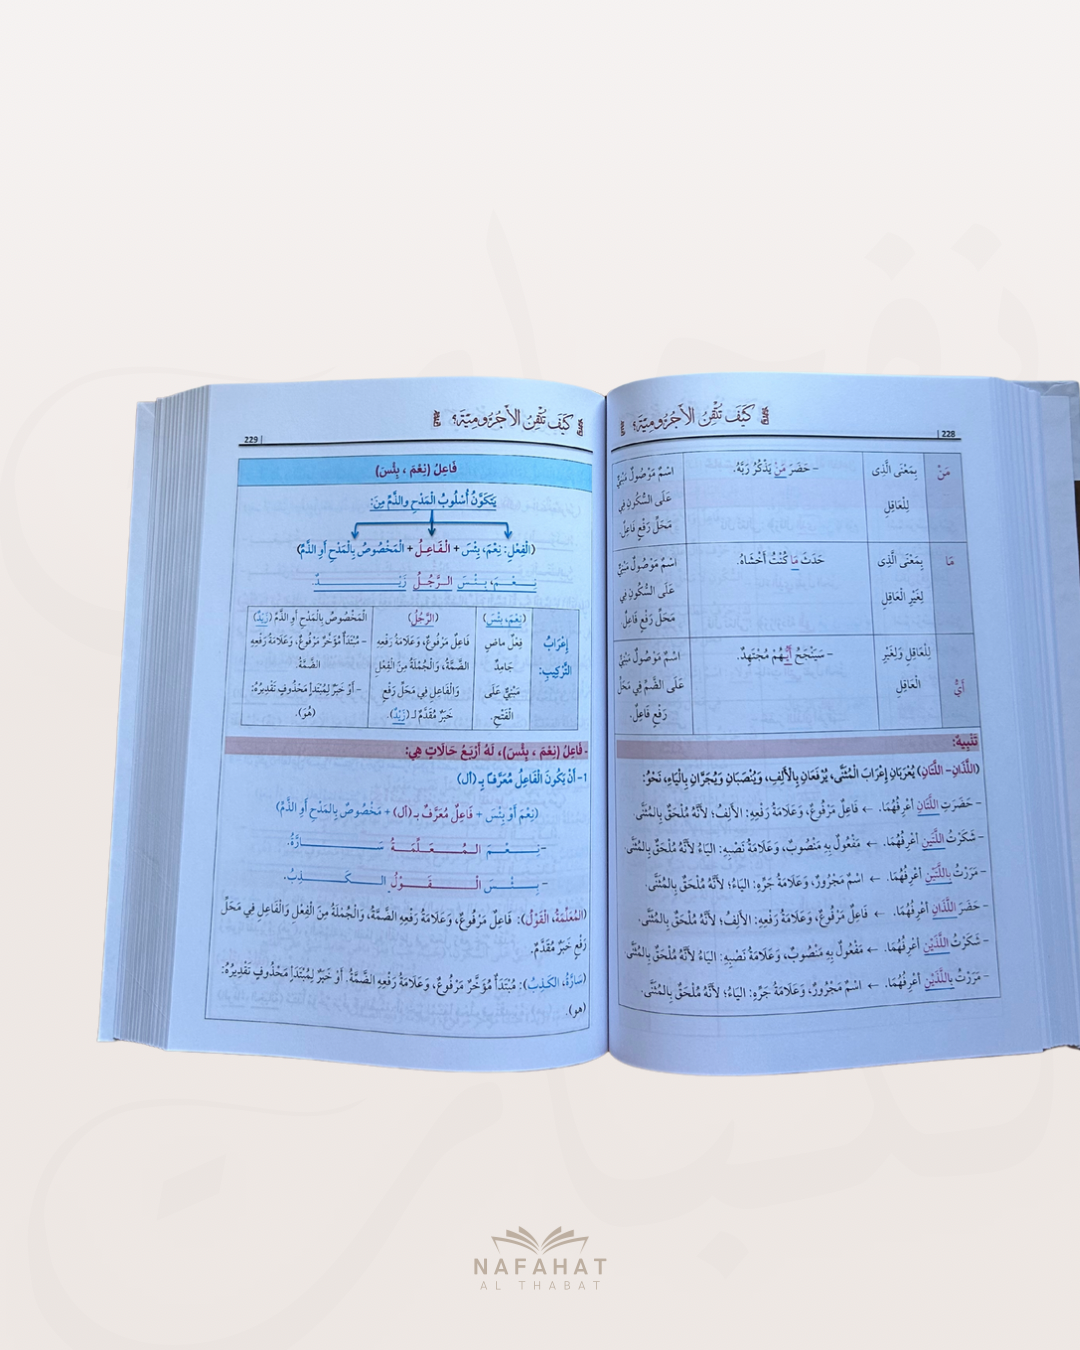 كَيْفَ تُتْقِنُ الْآجُرُّومِيَّةَ؟
228 |
مَنْ
بِمَعْنَى الَّذِى
لِلْعَاقِلِ
- حَضَرَ مَنْ يَذْكُرُ رَبَّهُ.
اسْمٌ مَوْصُولٌ مَبْنِيٌّ
عَلَى السُّكُونِ فِي
مَحَلِّ رَفْعِ فَاعِلٌ
مَا
بِمَعْنَى الَّذِى
لِغَيْرِ الْعَاقِلِ
حَدَثَ مَا كُنْتُ أَخْشَاهُ.
اسْمٌ مَوْصُولٌ مَبْنِيٌّ
عَلَى السُّكُونِ فِي
مَحَلِّ رَفْعِ فَاعِلٌ
أَيُّ
لِلْعَاقِلِ وَلِغَيْرِ
الْعَاقِلِ
- سَيَنْجَحُ أَيُّهُمْ مُجْتَهِدٌ.
اسْمٌ مَوْصُولٌ مَبْنِيٌّ
عَلَى الضَّمِّ فِي مَحَلِّ
رَفْعِ فَاعِلٌ.
تَنْبِيهٌ:
(اللَّذَانِ- اللَّتَانِ) يُعْرَبَانِ إِعْرَابَ الْمُثَنَّى، يُرْفَعَانِ بِالْأَلِفِ، وَيُنْصَبَانِ وَيُجَرَّانِ بِالْيَاءِ، نَحْوُ:
- حَضَرَتِ اللَّتَانِ أَعْرِفُهُمَا. ← فَاعِلٌ مَرْفُوعٌ، وَعَلَامَةُ رَفْعِهِ: الأَلِفُ؛ لأَنَّهُ مُلْحَقٌ بِالمُثَنَّى.
- شَكَرْتُ اللَّتَيْنِ أَعْرِفُهُمَا. ← مَفْعُولٌ بِهِ مَنْصُوبٌ، وَعَلَامَةُ نَصْبِهِ: اليَاءُ لأَنَّهُ مُلْحَقٌ بِالمُثَنَّى.
- مَرَرْتُ بِاللَّتَيْنِ أَعْرِفُهُمَا. ← اسْمٌ مَجْرُورٌ، وَعَلَامَةُ جَرِّهِ: اليَاءُ؛ لأَنَّهُ مُلْحَقٌ بِالمُثَنَّى.
- حَضَرَ اللَّذَانِ أَعْرِفُهُمَا. ← فَاعِلٌ مَرْفُوعٌ، وَعَلَامَةُ رَفْعِهِ: الأَلِفُ؛ لأَنَّهُ مُلْحَقٌ بِالمُثَنَّى.
- شَكَرْتُ اللَّذَيْنِ أَعْرِفُهُمَا. ← مَفْعُولٌ بِهِ مَنْصُوبٌ، وَعَلَامَةُ نَصْبِهِ: اليَاءُ لأَنَّهُ مُلْحَقٌ بِالمُثَنَّى.
- مَرَرْتُ بِاللَّذَيْنِ أَعْرِفُهُمَا. ← اسْمٌ مَجْرُورٌ، وَعَلَامَةُ جَرِّهِ: اليَاءُ؛ لأَنَّهُ مُلْحَقٌ بِالمُثَنَّى.
كَيْفَ تُتْقِنُ الْآجُرُّومِيَّةَ؟
229 |
فَاعِلُ (نِعْمَ ، بِئْسَ)
يَتَكَوَّنُ أُسْلُوبُ الْمَدْحِ والذَّمِّ مِنَ:
(الْفِعْلِ: نِعْمَ، بِئْسَ + الْفَاعِلُ + الْمَخْصُوصُ بِالْمَدْحِ أَوِ الذَّمِّ)
نِعْمَ، بِئْسَ الرَّجُلُ زَيْدٌ.
إِعْرَابُ
التَّرْكِيبِ:
(نِعْمَ، بِئْسَ)
فِعْلٌ مَاضٍ
جَامِدٌ
مَبْنِيٌّ عَلَى
الْفَتْحِ.
(الرَّجُلُ)
فَاعِلٌ مَرْفُوعٌ، وَعَلَامَةُ رَفْعِهِ
الضَّمَّةُ، وَالْجُمْلَةُ مِنَ الْفِعْلِ
وَالْفَاعِلِ فِي مَحَلِّ رَفْعِ
خَبَرٌ مُقَدَّمٌ لـ (زَيْدٌ).
الْمَخْصُوصُ بِالْمَدْحِ أَوِ الذَّمِّ (زَيْدٌ)
- مُبْتَدَأٌ مُؤَخَّرٌ مَرْفُوعٌ، وَعَلَامَةُ رَفْعِهِ
الضَّمَّةُ.
- أَوْ خَبَرٌ لِمُبْتَدَأٍ مَحْذُوفٍ تَقْدِيرُهُ:
(هُوَ).
- فَاعِلُ (نِعْمَ ، بِئْسَ)، لَهُ أَرْبَعُ حَالَاتٍ هِيَ:
1- أَنْ يَكُونَ الْفَاعِلُ مُعَرَّفًا بِـ (أل)
(نِعْمَ أَوْ بِئْسَ + فَاعِلٌ مُعَرَّفٌ بـ (أل) + مَخْصُوصٌ بِالمَدْحِ أَوِ الذَّمِّ)
- نِعْمَ المُعَلِّمَةُ سَارَّةُ.
- بِئْسَ الْقَوْلُ الكَذِبُ.
(المُعَلِّمَةُ، القَوْلُ): فَاعِلٌ مَرْفُوعٌ، وَعَلَامَةُ رَفْعِهِ الضَّمَّةُ، وَالْجُمْلَةُ مِنَ الْفِعْلِ وَالْفَاعِلِ فِي مَحَلِّ
رَفْعِ خَبَرٌ مُقَدَّمٌ.
(سَارَّةُ، الكَذِبُ): مُبْتَدَأٌ مُؤَخَّرٌ مَرْفُوعٌ، وَعَلَامَةُ رَفْعِهِ الضَّمَّةُ. أَوْ خَبَرٌ لِمُبْتَدَأٍ مَحْذُوفٍ تَقْدِيرُهُ:
(هو).
NAFAHAT
AL THABAT